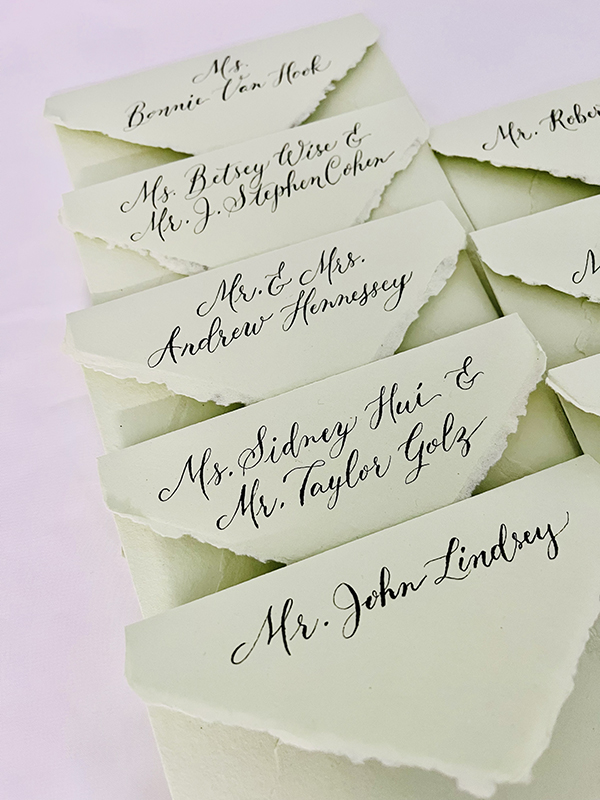 Ms.
Bonnie Van Hook
Ms. Betsey Wise &
Mr. J. Stephen Cohen
Mr. & Mrs.
Andrew Hennessey
Ms. Sidney Hui &
Mr. Taylor Golz
Mr. John Lindsey
Mr.